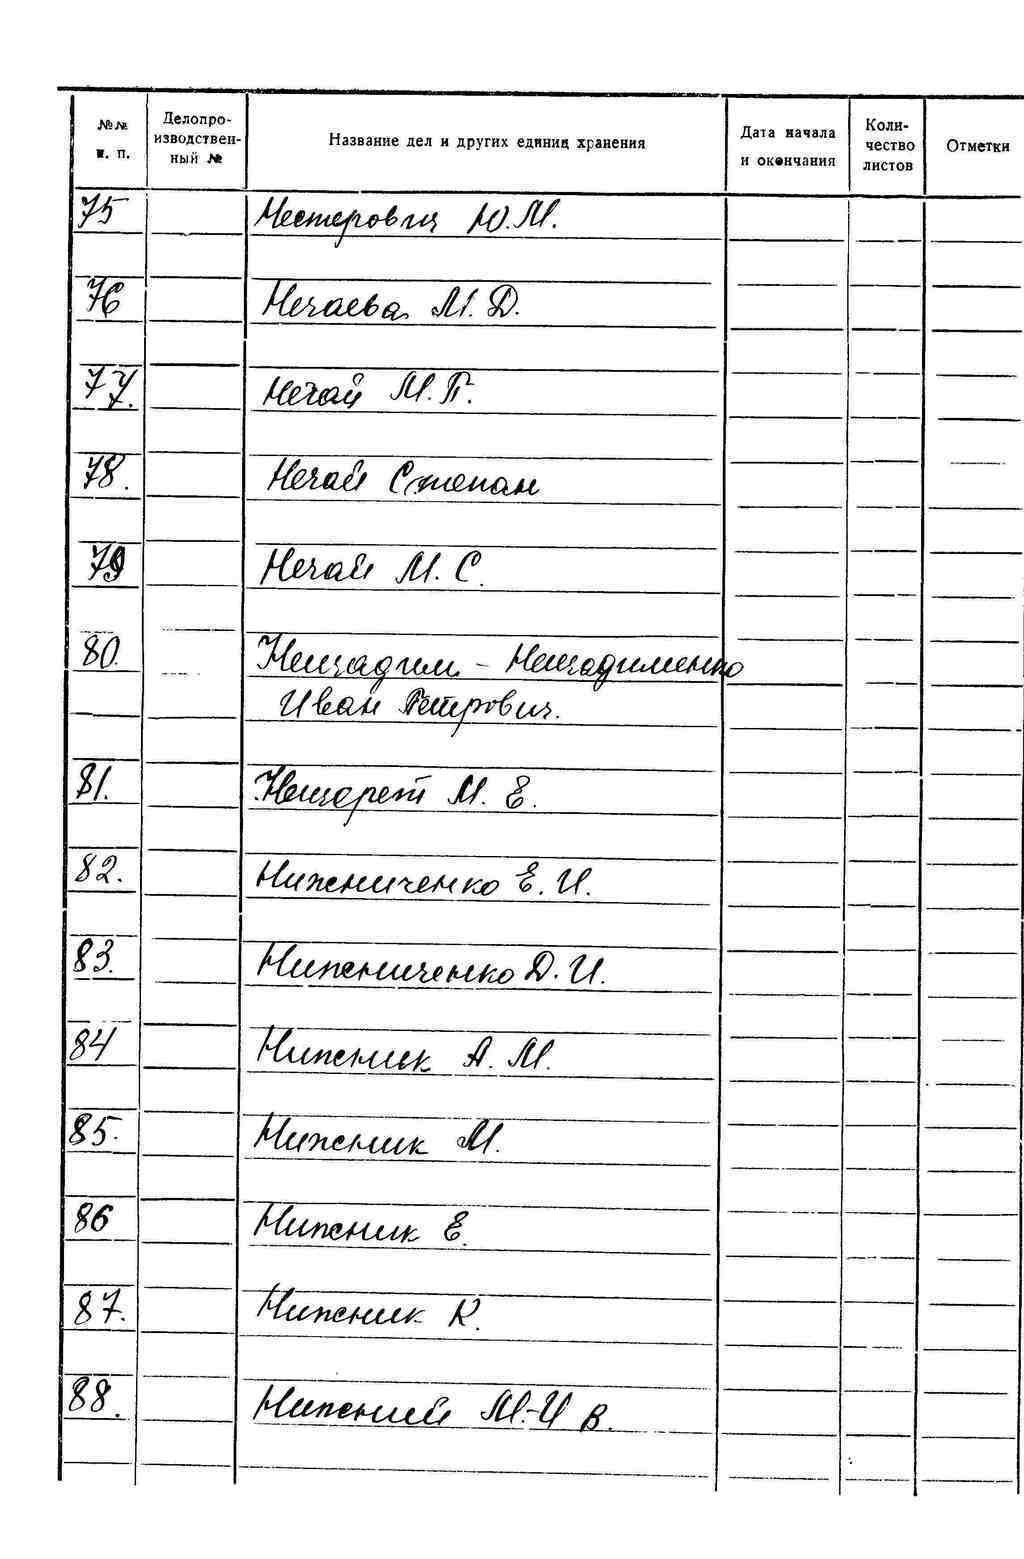 №№ п. п.
Делопроизводственный №
Название дел и других единиц хранения
Дата начала и окончания
Количество листов
Отметки
75 Нестерович Ю.М.
76 Нечаева М.Д.
77. Нечай М.П.
78. Нечай Степан
79 Нечай М.С.
80. Нещадим - Нещадименко
Иван Петрович.
81. Нещерет М.Е.
82. Нижниченко Е.И.
83. Нижниченко Д.И.
84 Нижник А.М.
85. Нижник М.
86 Нижник Е.
87. Нижник К.
88. Нижний М-И В.